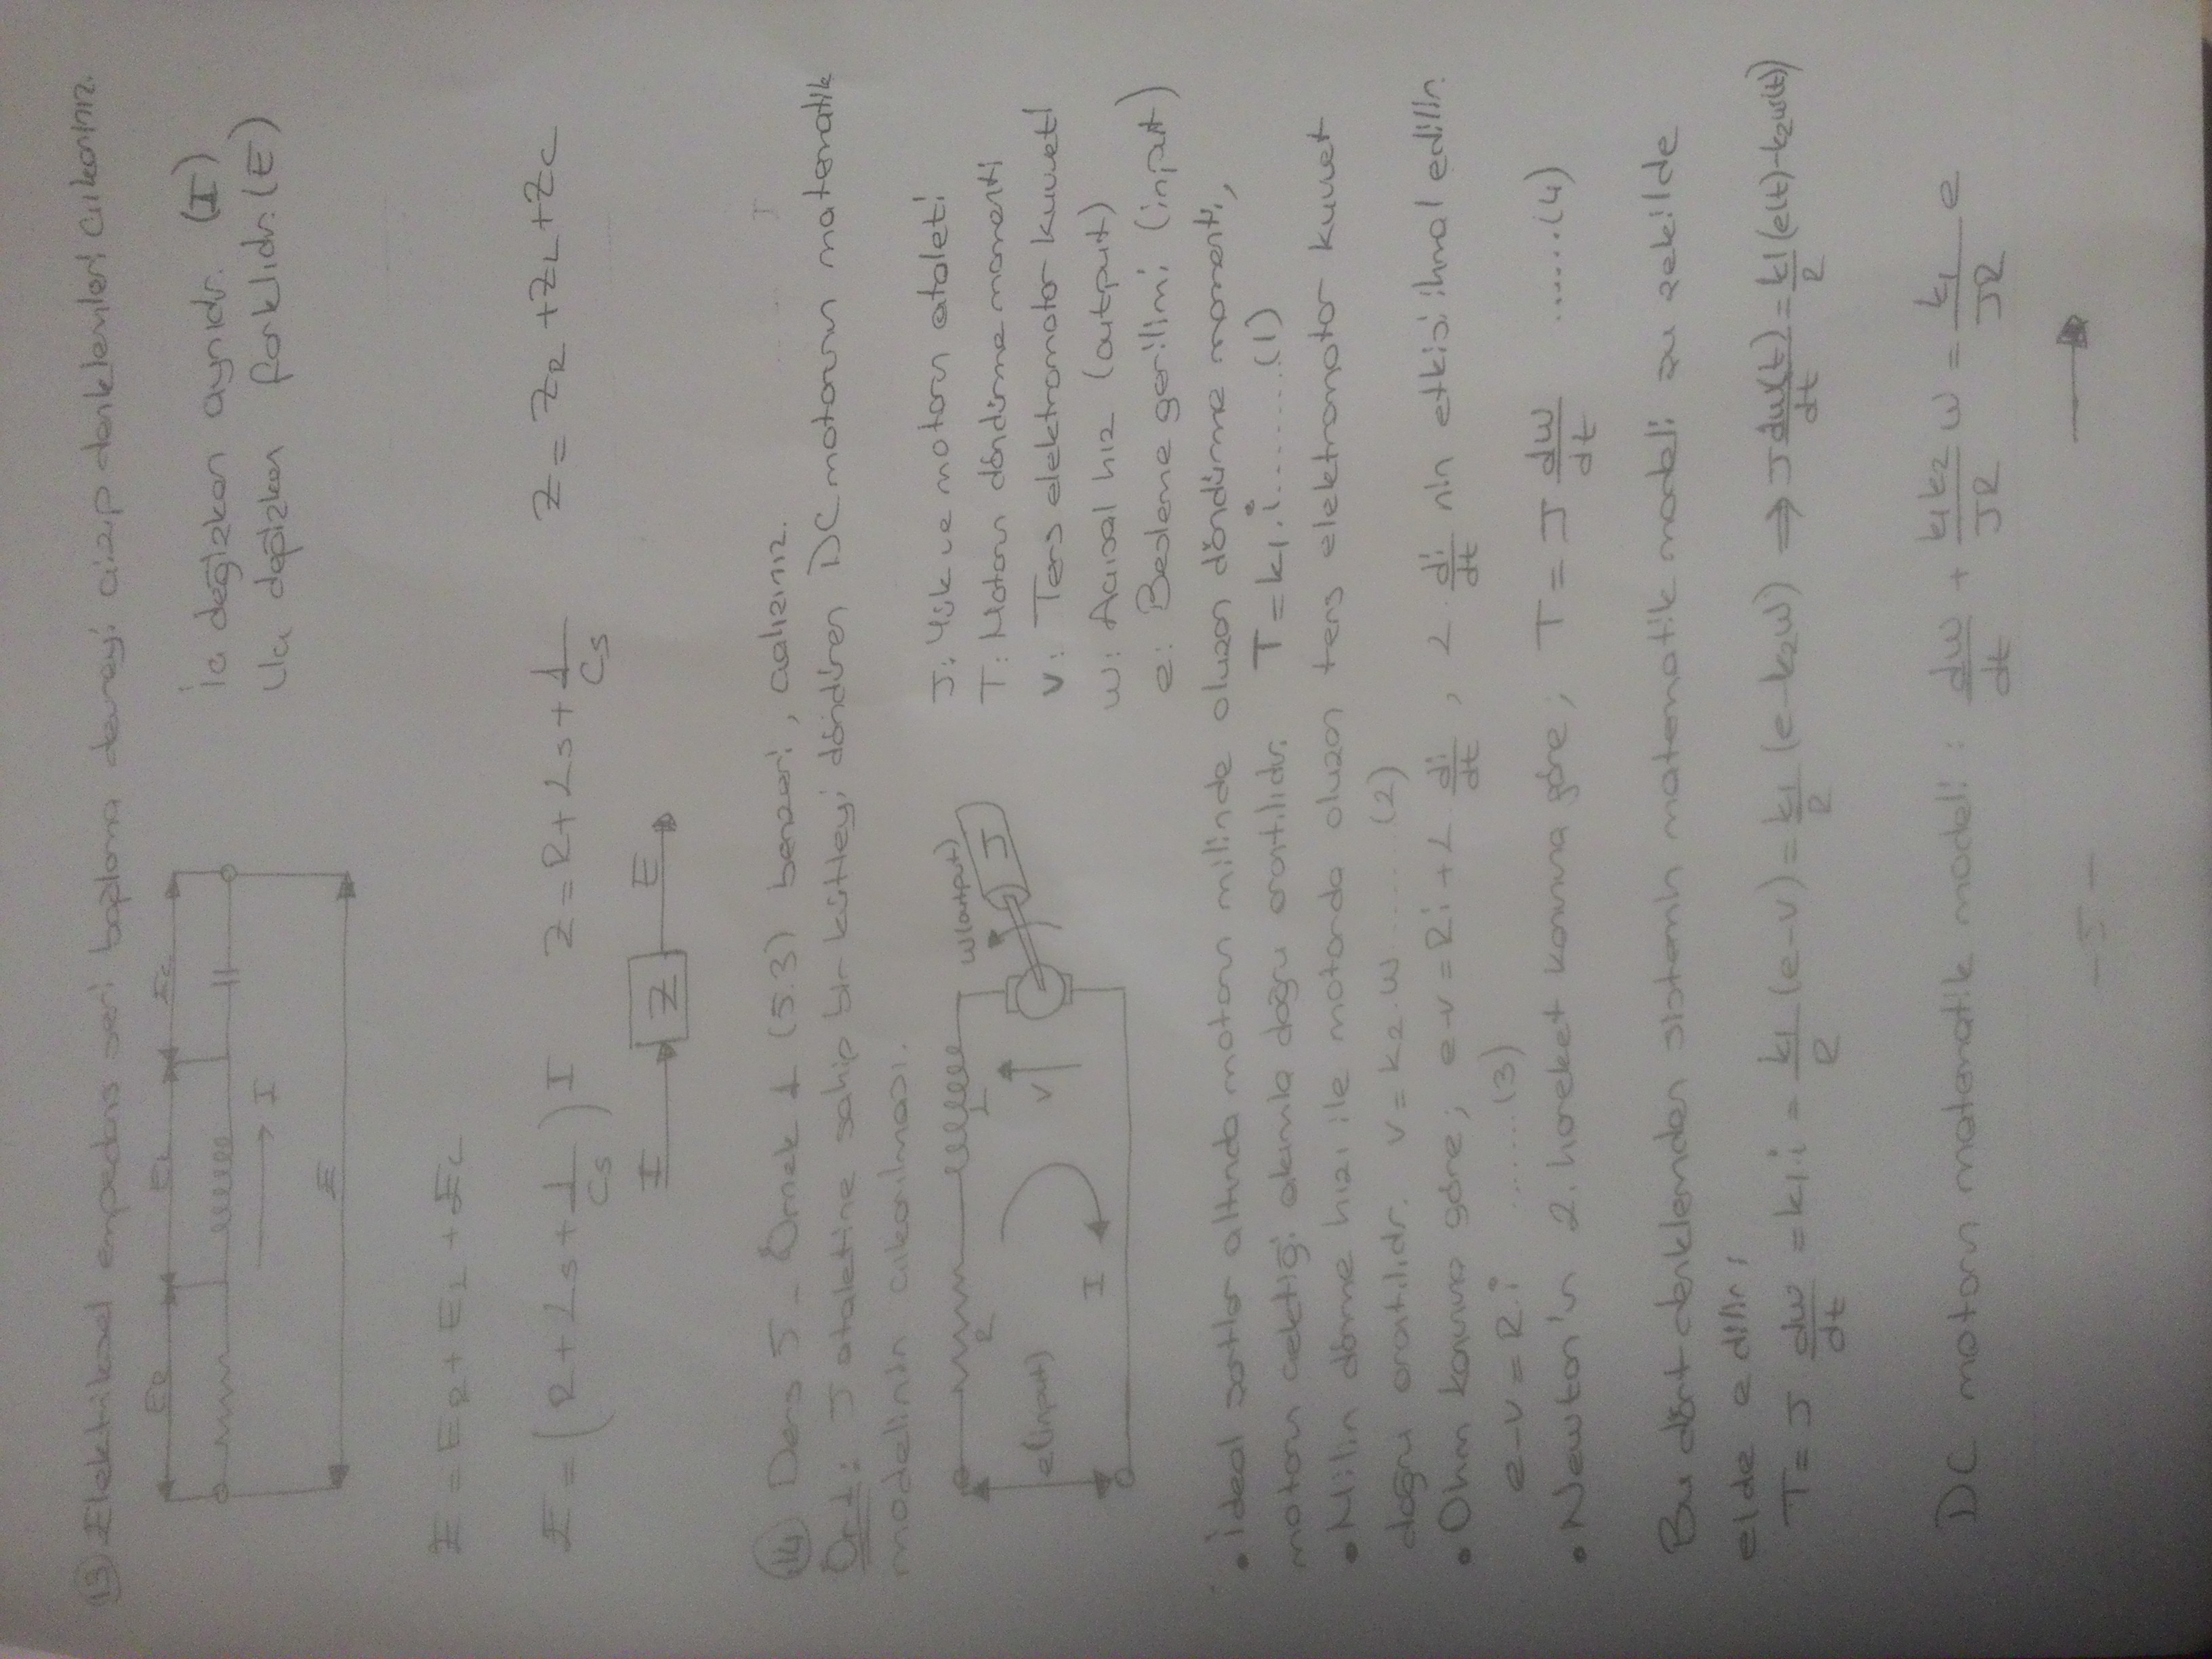 13) Elektiksel empedans seri bağlama devreyi çizip denklemleri çıkarınız.
ER EL EC
I
E
İç değişken aynıdır. (I)
Uç değişken farklıdır. (E)
E = ER + EL + EC
E = (R + Ls + 1/Cs) I Z = R + Ls + 1/Cs Z = ZR + ZL + ZC
I Z E
14) Ders 5 - Örnek 1 (5.3) benzeri, çalışınız.
Ör 1: J ataletine sahip bir kütleyi döndüren DC motorun matematik
modelinin çıkarılması.
R L w(output) J
e(input) I V
J: Yük ve motorun ataleti
T: Motorun döndürme momenti
v: Ters elektromotor kuvveti
w: Açısal hız (output)
e: Besleme gerilimi (input)
• İdeal şartlar altında motorun milinde oluşan döndürme momenti,
motorun çektiği akımla doğru orantılıdır. T = k1.i ........(1)
• Milin dönme hızı ile motorda oluşan ters elektromotor kuvvet
doğru orantılıdır. v = k2.w ......(2)
• Ohm kanununa göre; e-v = Ri + L di/dt , L. di/dt nin etkisi ihmal edilir.
e-v = R.i .......(3)
• Newton'un 2. hareket kanununa göre; T = J dw/dt .......(4)
Bu dört denklemden sistemin matematik modeli şu şekilde
elde edilir;
T = J dw/dt = k1.i = k1/R (e-v) = k1/R (e-k2w) ⇒ J dw(t)/dt = k1/R (e(t)-k2w(t))
DC motorun matematik modeli : dw/dt + k1k2/JR w = k1/JR e
- 5 -